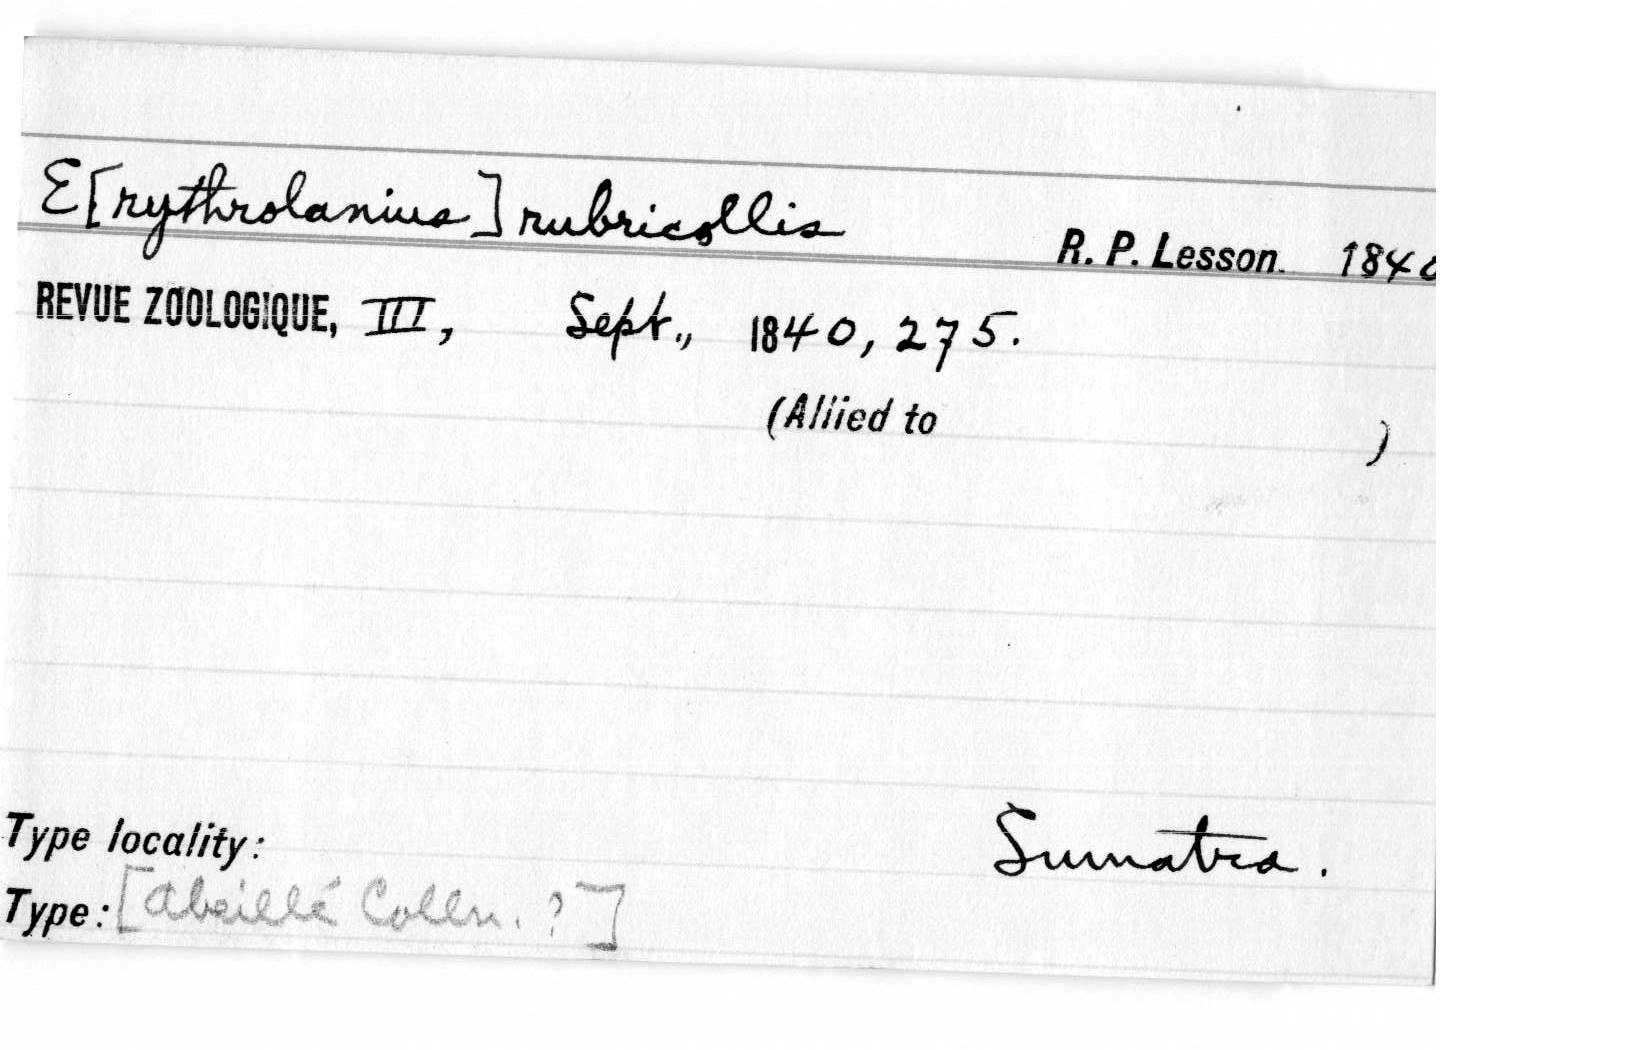 E[rythrolanius] rubricollis R. P. Lesson. 1840
REVUE ZOOLOGIQUE, III, Sept., 1840, 275.
(Allied to )
Type locality: Sumatra.
Type: [Abeillé Colln. ?]